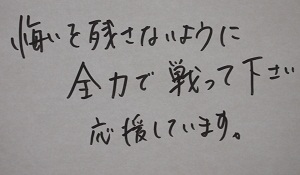 悔いを残さないように
全力で戦って下さい
応援しています。